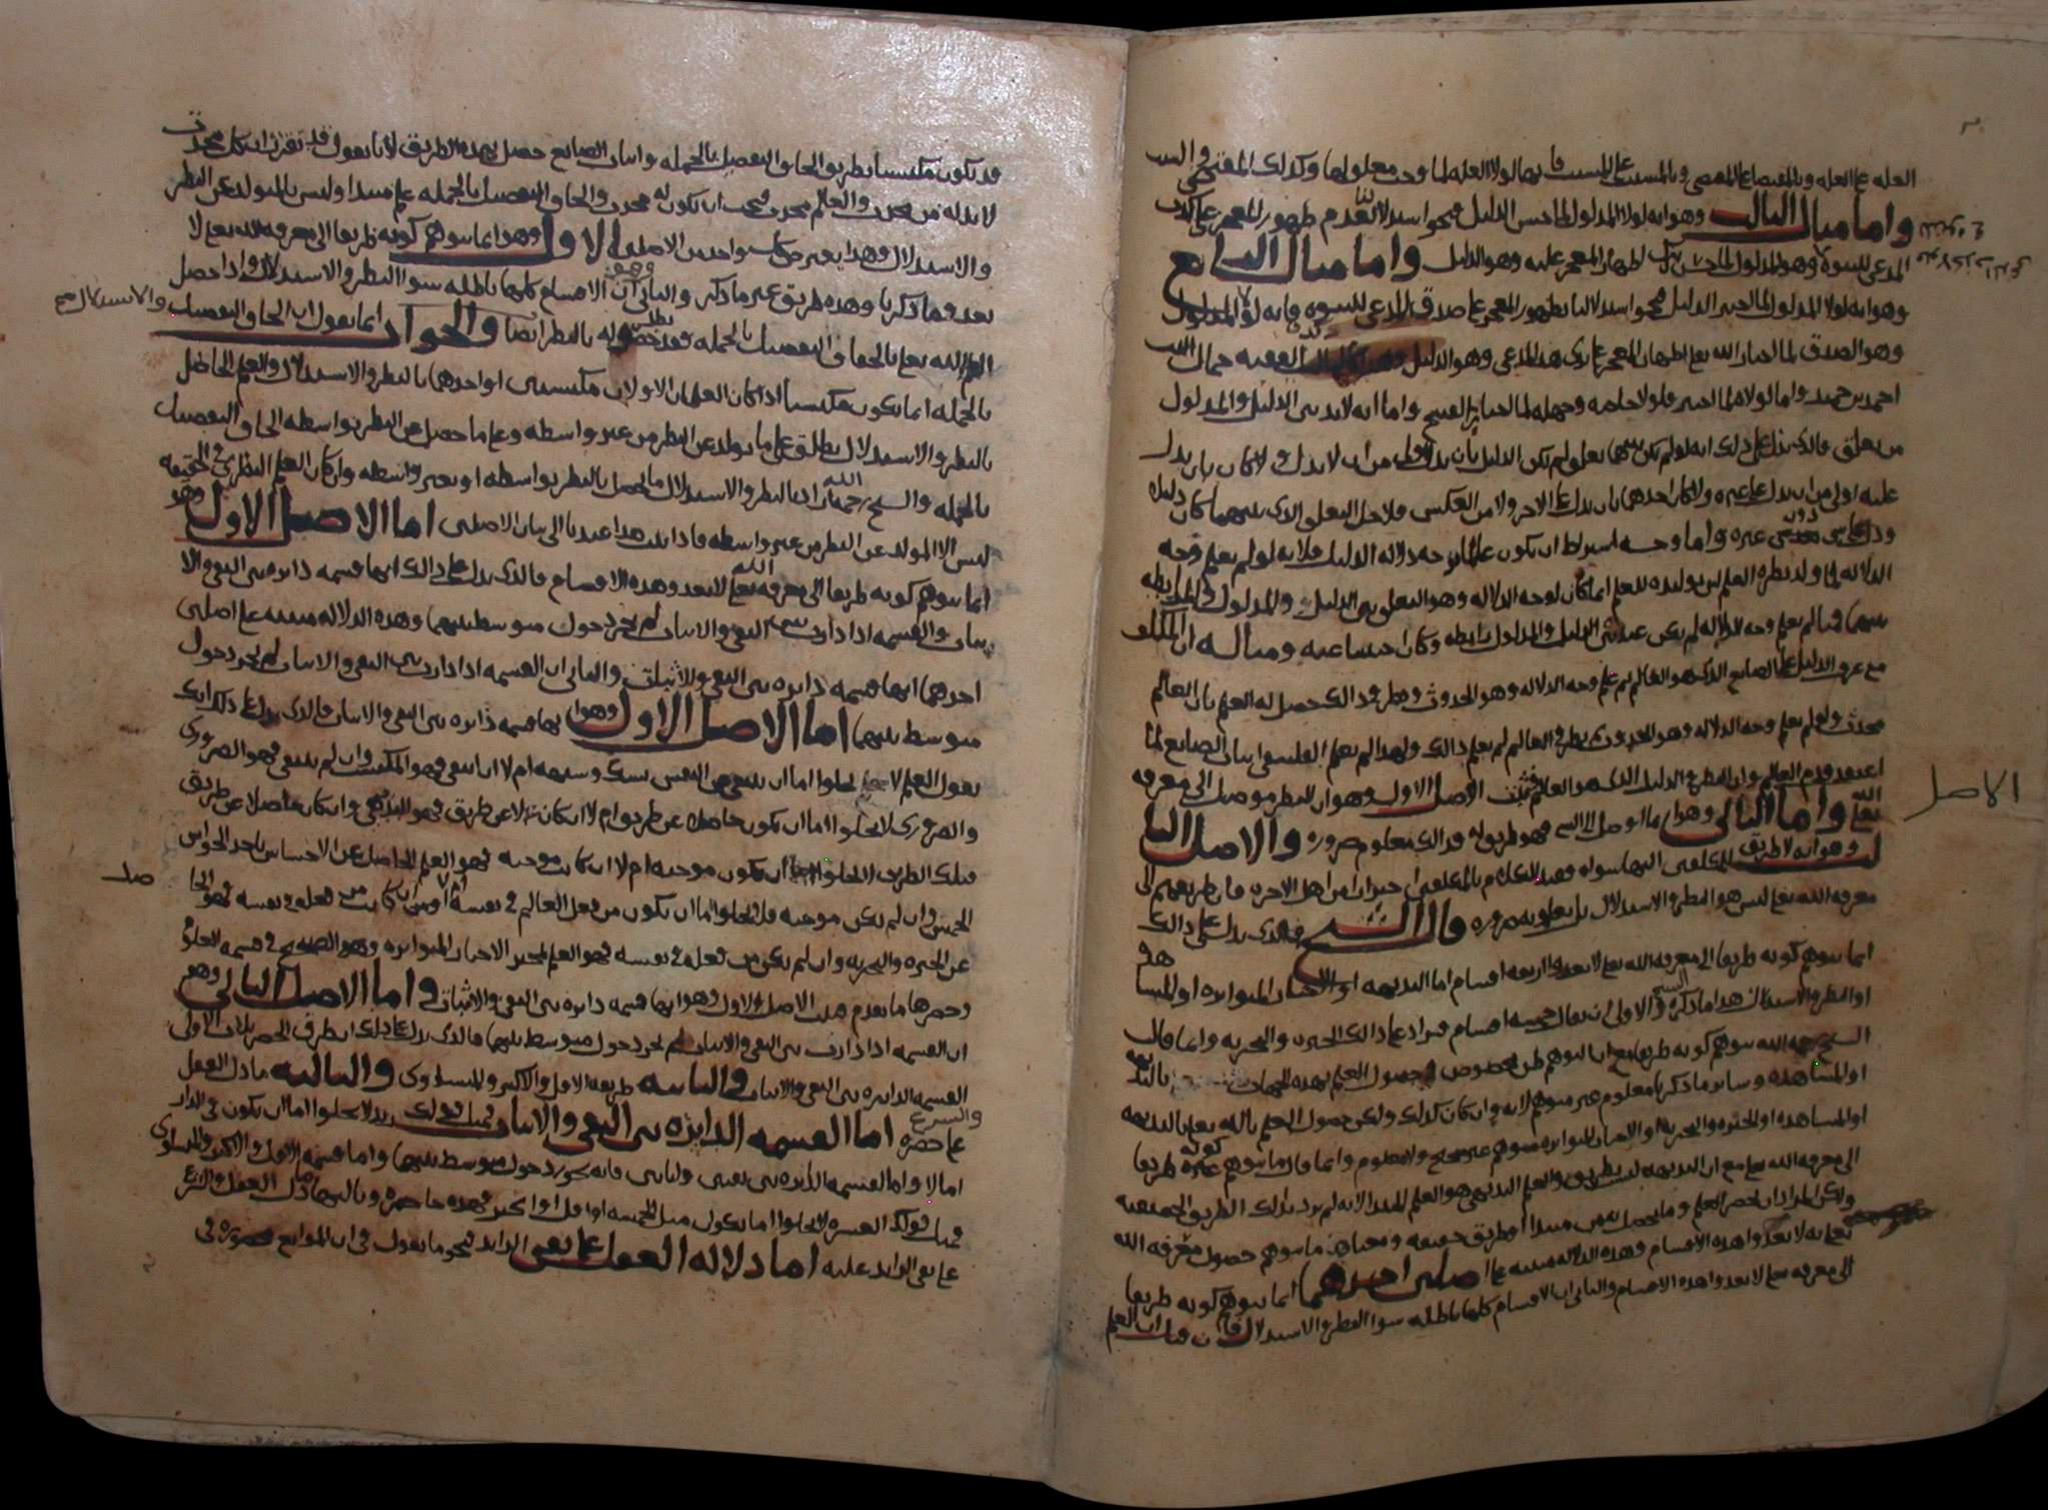 العله على العله وبالمقتضا على المقتضي وبالمسبب على السبب فانها لولا العله لما وجب معلولها وكذلك المقتضي والسبب
واما مثال الثالث وهو انه لولا المدلول لما حسن الدليل فنحو استدلالنا بظهور المعجز على
المدعي للنبوه وهو المدلول لما حسن من الله اظهار المعجز عليه وهو الدليل واما مثال الرابع
وهو انه لولا المدلول لما اختير الدليل فنحو استدلالنا بظهور المعجز على صدق المدعي للنبوه فانه لولا المدلول
وهو الصدق لما اختار الله تعلى اظهار المعجز على يدي هذا المدعي وهو الدليل الفقيه جمال الدين
احمد بن حميد واما لولاه لما اختير فلولا حاجته وجهله لما اختار القبيح واما انه لابد بين الدليل والمدلول
من تعلق فالذي يدل على ذلك انه لو لم يكن بينهما تعلق لم يكن الدليل بان يدل اولى من ان لا يدل ولا كان بان يدل
عليه اولى من ان يدل على غيره ولا كان احدهما بان يدل على الاخر اولا من العكس فلاجل التعلق الذي بينهما كان دليلا
ودل على شي دون غيره واما وجه اشتراط ان يكون عالما بوجه دلاله الدليل فلانه لو لم يعلم وجه
الدلاله لما ولد نظره العلم لان توليده للعلم انما كان لوجه الدلاله وهو التعلق بين الدليل والمدلول والرابطه
بينهما فما لم يعلم وجه الدلاله لم يكن عنده بين الدليل والمدلول رابطه ومثاله ان المكلف
متى عرف الدليل على الصانع الذي هو العالم ثم علم وجه الدلاله وهو الحدوث ونظر في ذالك حصل له العلم بان العالم
محدث ولو لم يعلم وجه الدلاله وهو الحدوث لم يعلم ذالك ولهذا لم يعلم الفلسفي اثبات الصانع لما
اعتقد قدم العالم وان نظر في الدليل الذي هو العالم فثبت الاصل الاول وهو ان النظر موصل الى معرفه
الله تعلى واما الثاني وهو ان ما اوصل الى الشي فهو طريق له فذالك معلوم ضروره والاصل الثا
لث وهو انه لا طريق للمكلفين اليها سواه فقيد الكلام بالمكلفين احترازا من اهل الاخره فان طريقهم الى
معرفه الله تعلى ليس هو النظر والاستدلال بل يعلمونه ضروره قال الشيخ فالذي يدل على ذالك
انما يتوهم كونه طريقا الى معرفه الله تعلى لا يعدو اربعه اقسام اما البديهه او الاخبار المتواتره او المشا
هده او النظر والاستدلال هذا ما ذكره الشيخ والاولى ان يقال خمسه اقسام فيزاد على ذالك الخبره والتجربه وانما قال
الشيخ رحمه الله يتوهم كونه طريقا
او المشاهده وسائر ما ذكرنا معلوم غير متوهم لانه وان كان كذلك ولكن حصول العلم بالله تعلى بالبديهه
او المشاهده او الخبره والتجربه او الاخبار المتواتره متوهم غير صحيح ولا معلوم وانما قال ما يتوهم كونه طريقا
الى معرفه الله تعلى مع ان البديهه ليست بطريق والعلم البديهي هو العلم المبتدا لانه لم يرد بذلك الطريق الحقيقيه
ولكن المراد ان يحصر العلم وما يحصل منه مبتدا او بطريق حقيقه ومعناه ان ما يتوهم حصول معرفه الله
تعلى به لا يعدوا هذه الاقسام وهذه الدلاله مبنيه على اصلين احدهما انما يتوهم كونه طريقا
الى معرفته تعلى لا يعدوا هذه الاقسام والثاني ان الاقسام كلها باطله سوا النظر والاستدلال فان قيل ان العلم
الاصل
قد يكون مكتسبا بطريق الحاق التفصيل بالجمله واثبات الصانع حصل بهذه الطريق لانا نقول قد تقرر ان كل محدث
لابد له من محدث والعالم محدث فيجب ان يكون له محدث والحاق التفصيل بالجمله علم مبتدا وليس بالمتولد عن النظر
والاستدلال وهذا يعترض كل واحد من الاصلين الاول وهو انما يتوهم كونه طريقا الى معرفه الله تعلى لا
يعدو ما ذكرنا وهذه طريق غير ما ذكر والثاني وهو ان الاقسام كلها باطله سوا النظر والاستدلال واذا حصل
العلم لله تعلى بالحاق التفصيل بالجمله فقد بطل حصوله بالنظر ايضا والجواب انما نقول ان الحاق التفصيل
والاستدلال صح
بالجمله انما يكون مكتسبا اذا كان العلمان الاولان مكتسبين او احدهما بالنظر والاستدلال والعلم الحاصل
بالنظر والاستدلال يطلق على ما تولد عن النظر من غير واسطه وعلى ما حصل عن النظر بواسطه الحاق التفصيل
بالجمله والشيخ رحمه الله اراد بالنظر والاستدلال ما يحصل بالنظر بواسطه او بغير واسطه وان كان العلم النظري في الحقيقه
ليس الا المتولد عن النظر من غير واسطه فاذا ثبت هذا عدنا الى بيان الاصلين اما الاصل الاول وهو
انما يتوهم كونه طريقا الى معرفه الله تعلى لا يعدو هذه الاقسام فالذي يدل على ذالك انها قسمه دائره بين النفي والا
ثبات والقسمه اذا دارت بين النفي والاثبات لم يجز دخول متوسط بينهما وهذه الدلاله مبنيه على اصلين
احدهما انها قسمه دائره بين النفي والاثبات والثاني ان القسمه اذا دارت بين النفي والاثبات لم يجز دخول
متوسط بينهما اما الاصل الاول وهو انها قسمه دائره بين النفي والاثبات فالذي يدل على ذلك انك
تقول العلم لا يخلوا اما ان ينتفي عن النفس بشك وشبهه ام لا ان انتفى فهو المكتسب وان لم ينتفي فهو الضروري
والضروري لا يخلوا اما ان يكون حاصلا عن طريق ام لا ان كان لا عن طريق فهو البديهي وان كان حاصلا عن طريق
فتلك الطريق لا تخلوا اما ان تكون موجبه ام لا ان كانت موجبه فهو العلم الحاصل عن الاحساس باحد الحواس
الخمس وان لم يكن موجبه فلا يخلوا اما ان يكون من فعل العالم في نفسه ام لا ان كانت من فعله في نفسه فهو الحا
صل
عن الخبره والتجربه وان لم يكن من فعله في نفسه فهو العلم بمخبر الاخبار المتواتره وهو الصحيح في قسمه العلوم
وحصرها ما تقدم فثبت الاصل الاول وهو انها قسمه دائره بين النفي والاثبات واما الاصل الثاني وهو
ان القسمه اذا دارت بين النفي والاثبات لم يجز دخول متوسط بينهما فالذي يدل على ذلك ان طرق الحصر ثلاث الاولى
القسمه الدائره بين النفي والاثبات والثانيه طريقه الاقل والاكثر والمتساوي والثالثه ما دل العقل
والشرع على حصره اما القسمه الدائره بين النفي والاثبات فمثل قولك زيد لا يخلوا اما ان يكون في الدار
ام لا واما القسمه الدائره بين نفيين واثباتين فانه يجوز دخول متوسط بينهما واما قسمه الاقل والاكثر والمتساوي
فمثل قولك العشره لا تخلوا اما تكون مثل الخمسه او اقل او اكثر فهذه حاصره وثالثها ما دل العقل والشرع
على نفي الزائد عليه اما دلاله العقل على نفي الزائد فنحو ما نقول في ان الموانع محصوره في